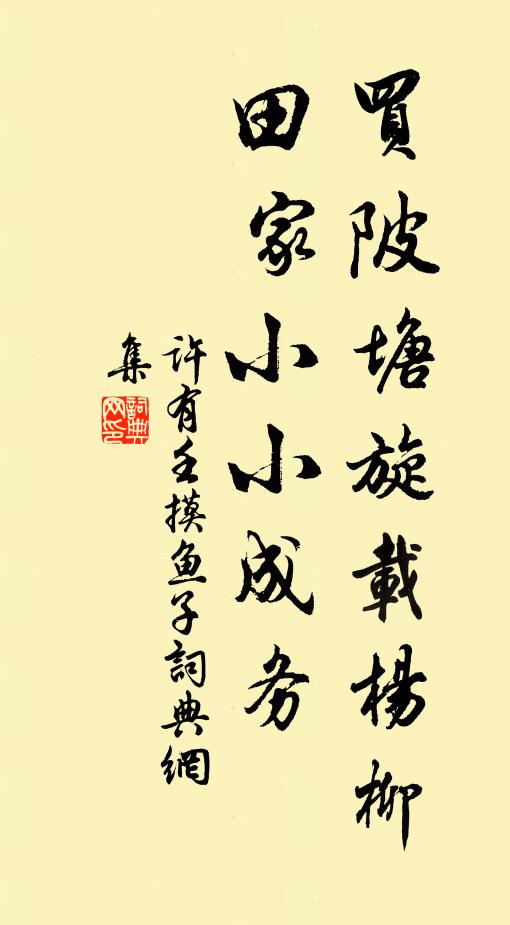 買陂塘旋載楊柳
田家小小成务
许有壬摸鱼子詞典網
集
詞典
网印